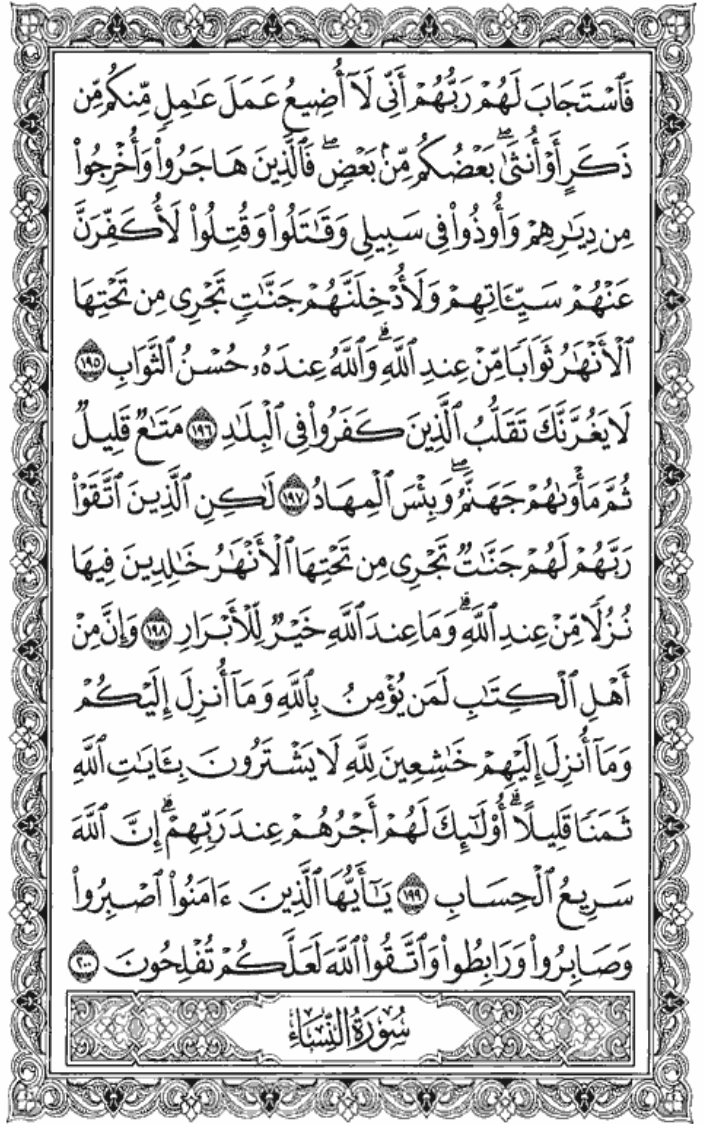 فَٱسۡتَجَابَ لَهُمۡ رَبُّهُمۡ أَنِّي لَآ أُضِيعُ عَمَلَ عَٰمِلٖ مِّنكُم مِّن
ذَكَرٍ أَوۡ أُنثَىٰۖ بَعۡضُكُم مِّنۢ بَعۡضٖۖ فَٱلَّذِينَ هَاجَرُواْ وَأُخۡرِجُواْ
مِن دِيَٰرِهِمۡ وَأُوذُواْ فِي سَبِيلِي وَقَٰتَلُواْ وَقُتِلُواْ لَأُكَفِّرَنَّ
عَنۡهُمۡ سَيِّـَٔاتِهِمۡ وَلَأُدۡخِلَنَّهُمۡ جَنَّٰتٖ تَجۡرِي مِن تَحۡتِهَا
ٱلۡأَنۡهَٰرُ ثَوَابٗا مِّنۡ عِندِ ٱللَّهِۚ وَٱللَّهُ عِندَهُۥ حُسۡنُ ٱلثَّوَابِ ١٩٥
لَا يَغُرَّنَّكَ تَقَلُّبُ ٱلَّذِينَ كَفَرُواْ فِي ٱلۡبِلَٰدِ ١٩٦ مَتَٰعٞ قَلِيلٞ
ثُمَّ مَأۡوَىٰهُمۡ جَهَنَّمُۖ وَبِئۡسَ ٱلۡمِهَادُ ١٩٧ لَٰكِنِ ٱلَّذِينَ ٱتَّقَوۡاْ
رَبَّهُمۡ لَهُمۡ جَنَّٰتٞ تَجۡرِي مِن تَحۡتِهَا ٱلۡأَنۡهَٰرُ خَٰلِدِينَ فِيهَا
نُزُلٗا مِّنۡ عِندِ ٱللَّهِۗ وَمَا عِندَ ٱللَّهِ خَيۡرٞ لِّلۡأَبۡرَارِ ١٩٨ وَإِنَّ مِنۡ
أَهۡلِ ٱلۡكِتَٰبِ لَمَن يُؤۡمِنُ بِٱللَّهِ وَمَآ أُنزِلَ إِلَيۡكُمۡ
وَمَآ أُنزِلَ إِلَيۡهِمۡ خَٰشِعِينَ لِلَّهِ لَا يَشۡتَرُونَ بِـَٔايَٰتِ ٱللَّهِ
ثَمَنٗا قَلِيلًاۚ أُوْلَٰٓئِكَ لَهُمۡ أَجۡرُهُمۡ عِندَ رَبِّهِمۡۗ إِنَّ ٱللَّهَ
سَرِيعُ ٱلۡحِسَابِ ١٩٩ يَٰٓأَيُّهَا ٱلَّذِينَ ءَامَنُواْ ٱصۡبِرُواْ
وَصَابِرُواْ وَرَابِطُواْ وَٱتَّقُواْ ٱللَّهَ لَعَلَّكُمۡ تُفۡلِحُونَ ٢٠٠
سُورَةُ النِّسَاءِ